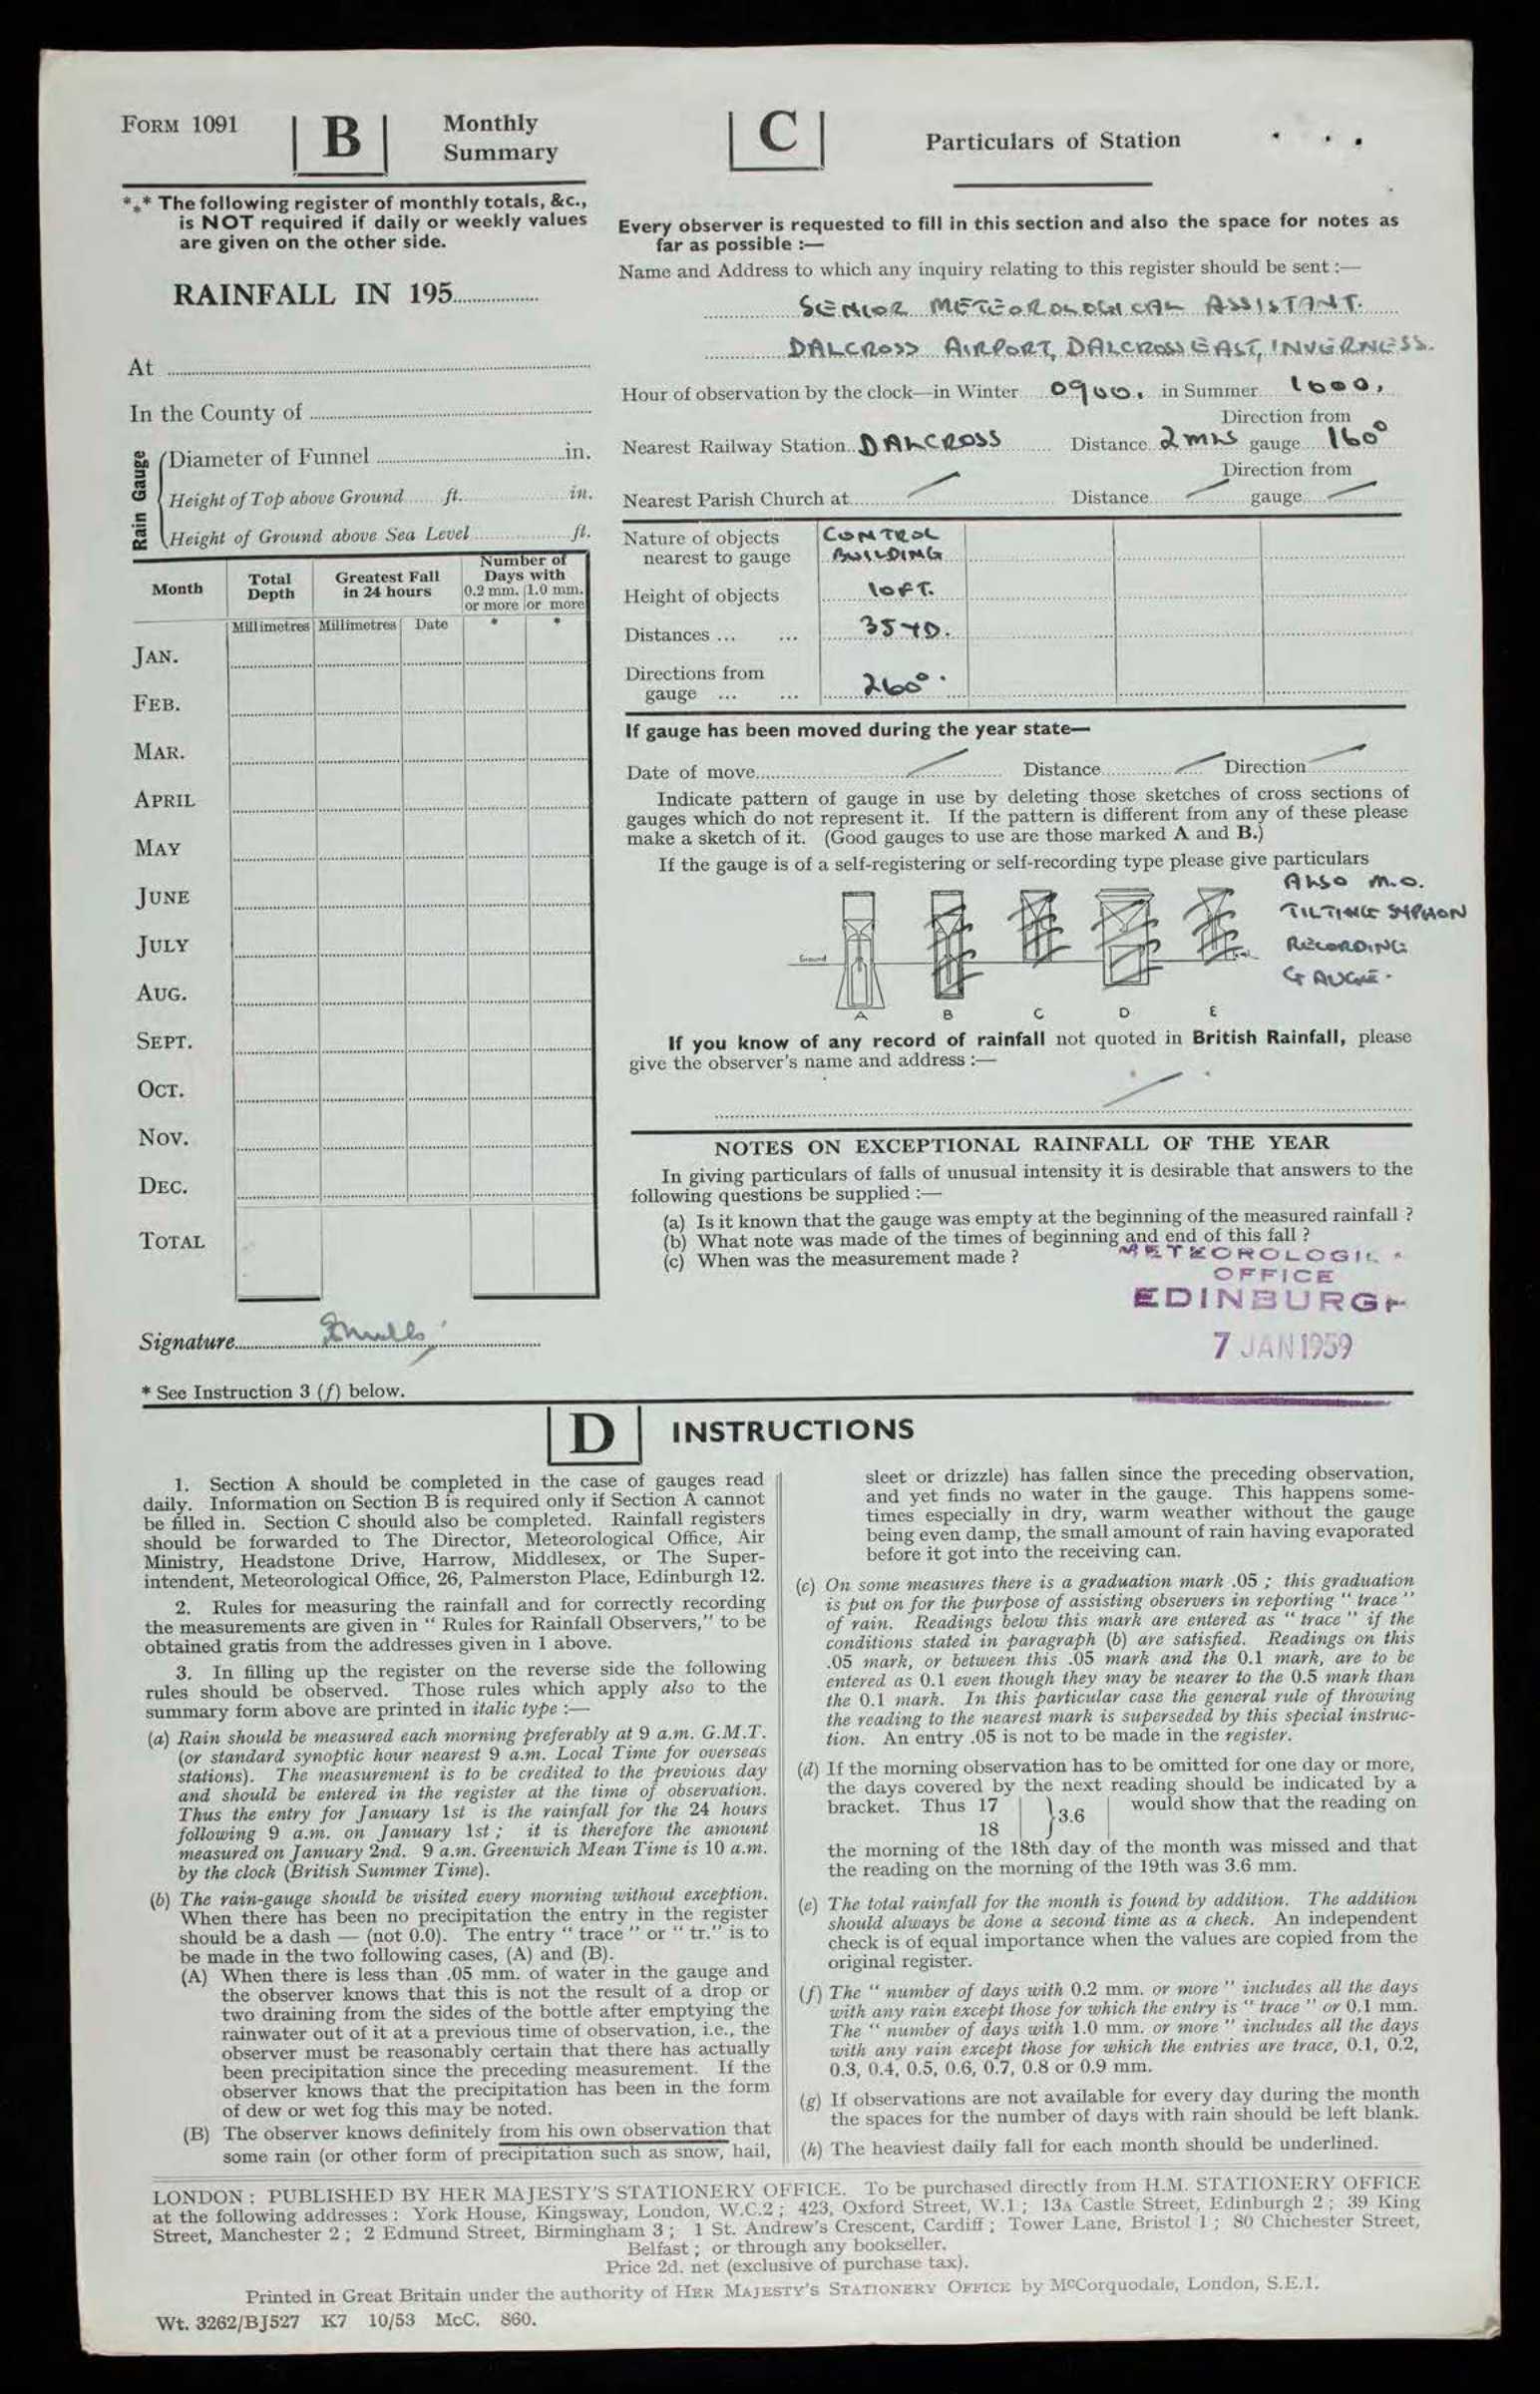 FORM 1091
B
Monthly
Summary
*⁎* The following register of monthly totals, &c.,
is NOT required if daily or weekly values
are given on the other side.
RAINFALL IN 195
At
In the County of
Rain Gauge
Diameter of Funnel in.
Height of Top above Ground ft. in.
Height of Ground above Sea Level ft.
Month
Total
Depth
Greatest Fall
in 24 hours
Number of
Days with
0.2 mm. 1.0 mm.
or more or more
Millimetres Millimetres Date * *
JAN.
FEB.
MAR.
APRIL
MAY
JUNE
JULY
AUG.
SEPT.
OCT.
NOV.
DEC.
TOTAL
Signature
* See Instruction 3 (f) below.
C
Particulars of Station
Every observer is requested to fill in this section and also the space for notes as
far as possible :—
Name and Address to which any inquiry relating to this register should be sent :—
SENIOR METEOROLOGICAL ASSISTANT.
DALCROSS AIRPORT, DALCROSS EAST, INVERNESS.
Hour of observation by the clock—in Winter 0900. in Summer 1000.
Direction from
Nearest Railway Station DALCROSS Distance 2 MLS gauge 160°
Direction from
Nearest Parish Church at Distance gauge
Nature of objects
nearest to gauge
CONTROL
BUILDING
Height of objects 10 FT.
Distances ... ... 35 YD.
Directions from
gauge ... ... 260°.
If gauge has been moved during the year state—
Date of move Distance Direction
Indicate pattern of gauge in use by deleting those sketches of cross sections of
gauges which do not represent it. If the pattern is different from any of these please
make a sketch of it. (Good gauges to use are those marked A and B.)
If the gauge is of a self-registering or self-recording type please give particulars
ALSO M.O.
TILTING SYPHON
RECORDING
GAUGE.
Ground
A B C D E
If you know of any record of rainfall not quoted in British Rainfall, please
give the observer's name and address :—
NOTES ON EXCEPTIONAL RAINFALL OF THE YEAR
In giving particulars of falls of unusual intensity it is desirable that answers to the
following questions be supplied :—
(a) Is it known that the gauge was empty at the beginning of the measured rainfall ?
(b) What note was made of the times of beginning and end of this fall ?
(c) When was the measurement made ?
METEOROLOGIC
OFFICE
EDINBURGH
7 JAN 1959
D
INSTRUCTIONS
1. Section A should be completed in the case of gauges read
daily. Information on Section B is required only if Section A cannot
be filled in. Section C should also be completed. Rainfall registers
should be forwarded to The Director, Meteorological Office, Air
Ministry, Headstone Drive, Harrow, Middlesex, or The Super-
intendent, Meteorological Office, 26, Palmerston Place, Edinburgh 12.
2. Rules for measuring the rainfall and for correctly recording
the measurements are given in “ Rules for Rainfall Observers,” to be
obtained gratis from the addresses given in 1 above.
3. In filling up the register on the reverse side the following
rules should be observed. Those rules which apply also to the
summary form above are printed in italic type :—
(a) Rain should be measured each morning preferably at 9 a.m. G.M.T.
(or standard synoptic hour nearest 9 a.m. Local Time for overseas
stations). The measurement is to be credited to the previous day
and should be entered in the register at the time of observation.
Thus the entry for January 1st is the rainfall for the 24 hours
following 9 a.m. on January 1st ; it is therefore the amount
measured on January 2nd. 9 a.m. Greenwich Mean Time is 10 a.m.
by the clock (British Summer Time).
(b) The rain-gauge should be visited every morning without exception.
When there has been no precipitation the entry in the register
should be a dash — (not 0.0). The entry “ trace ” or “ tr.” is to
be made in the two following cases, (A) and (B).
(A) When there is less than .05 mm. of water in the gauge and
the observer knows that this is not the result of a drop or
two draining from the sides of the bottle after emptying the
rainwater out of it at a previous time of observation, i.e., the
observer must be reasonably certain that there has actually
been precipitation since the preceding measurement. If the
observer knows that the precipitation has been in the form
of dew or wet fog this may be noted.
(B) The observer knows definitely from his own observation that
some rain (or other form of precipitation such as snow, hail,
sleet or drizzle) has fallen since the preceding observation,
and yet finds no water in the gauge. This happens some-
times especially in dry, warm weather without the gauge
being even damp, the small amount of rain having evaporated
before it got into the receiving can.
(c) On some measures there is a graduation mark .05 ; this graduation
is put on for the purpose of assisting observers in reporting “ trace ”
of rain. Readings below this mark are entered as “ trace ” if the
conditions stated in paragraph (b) are satisfied. Readings on this
.05 mark, or between this .05 mark and the 0.1 mark, are to be
entered as 0.1 even though they may be nearer to the 0.5 mark than
the 0.1 mark. In this particular case the general rule of throwing
the reading to the nearest mark is superseded by this special instruc-
tion. An entry .05 is not to be made in the register.
(d) If the morning observation has to be omitted for one day or more,
the days covered by the next reading should be indicated by a
bracket. Thus 17 } 3.6 would show that the reading on
18
the morning of the 18th day of the month was missed and that
the reading on the morning of the 19th was 3.6 mm.
(e) The total rainfall for the month is found by addition. The addition
should always be done a second time as a check. An independent
check is of equal importance when the values are copied from the
original register.
(f) The “ number of days with 0.2 mm. or more ” includes all the days
with any rain except those for which the entry is “ trace ” or 0.1 mm.
The “ number of days with 1.0 mm. or more ” includes all the days
with any rain except those for which the entries are trace, 0.1, 0.2,
0.3, 0.4, 0.5, 0.6, 0.7, 0.8 or 0.9 mm.
(g) If observations are not available for every day during the month
the spaces for the number of days with rain should be left blank.
(h) The heaviest daily fall for each month should be underlined.
LONDON : PUBLISHED BY HER MAJESTY'S STATIONERY OFFICE. To be purchased directly from H.M. STATIONERY OFFICE
at the following addresses : York House, Kingsway, London, W.C.2 ; 423, Oxford Street, W.1 ; 13A Castle Street, Edinburgh 2 ; 39 King
Street, Manchester 2 ; 2 Edmund Street, Birmingham 3 ; 1 St. Andrew's Crescent, Cardiff ; Tower Lane, Bristol 1 ; 80 Chichester Street,
Belfast ; or through any bookseller.
Price 2d. net (exclusive of purchase tax).
Printed in Great Britain under the authority of HER MAJESTY'S STATIONERY OFFICE by McCorquodale, London, S.E.1.
Wt. 3262/BJ527 K7 10/53 McC. 860.